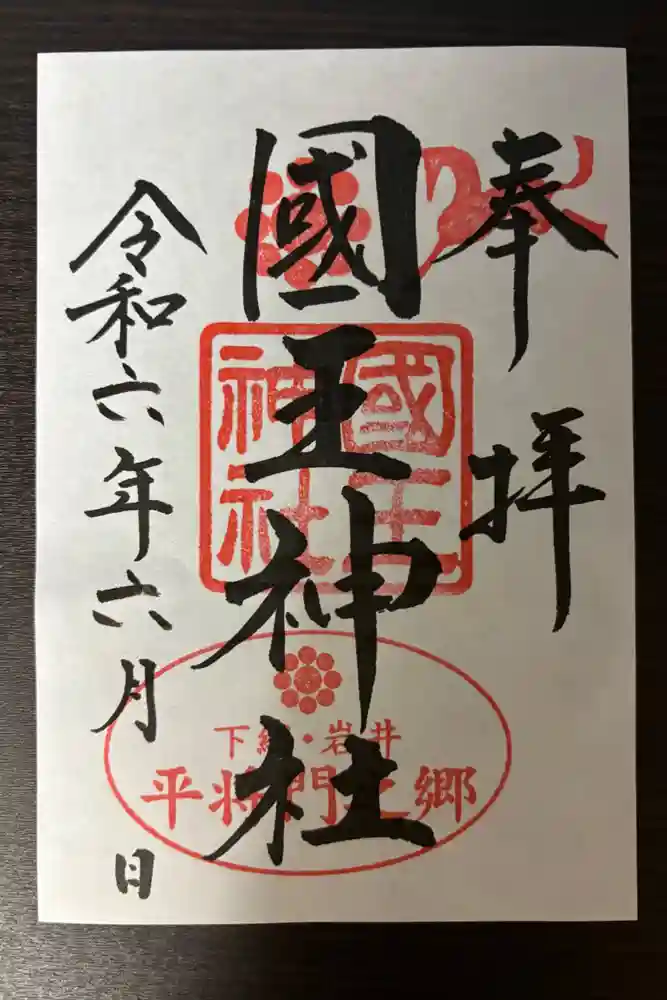 奉拝
國王神社
國王神社
下総・岩井
平将門之郷
令和六年六月 日